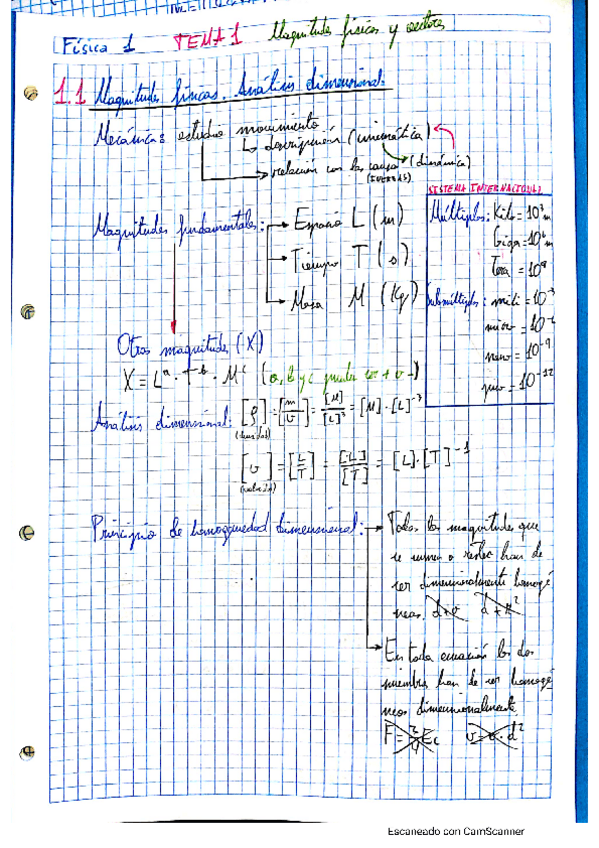 Física 1 TEMA 1 Magnitudes físicas y vectores
1.1 Magnitudes físicas. Análisis dimensional
Mecánica: estudio movimiento
↳ descripción (cinemática)
→ relación con las causas (dinámica)
(FUERZAS)
SISTEMA INTERNACIONAL
Magnitudes fundamentales: → Espacio L (m)
→ Tiempo T (s)
→ Masa M (Kg)
Múltiplos: Kilo = 10³ m
Giga = 10⁶ m
Tera = 10⁹
Submúltiplos: mili = 10⁻³
micro = 10⁻⁶
nano = 10⁻⁹
pico = 10⁻¹²
Otras magnitudes (X)
X = Lᵃ · Tᵇ · Mᶜ (a, b y c pueden ser + o -)
Análisis dimensional: [ρ] = [m/V] = [M]/[L]³ = [M]·[L]⁻³
(densidad)
[v] = [L/T] = [L]/[T] = [L]·[T]⁻¹
(velocidad)
Principio de homogeneidad dimensional: → Todas las magnitudes que
se sumen o resten han de
ser dimensionalmente homogé
neas. d+v d+t²
→ En toda ecuación los dos
miembros han de ser homogé
neos dimensionalmente
Escaneado con CamScanner